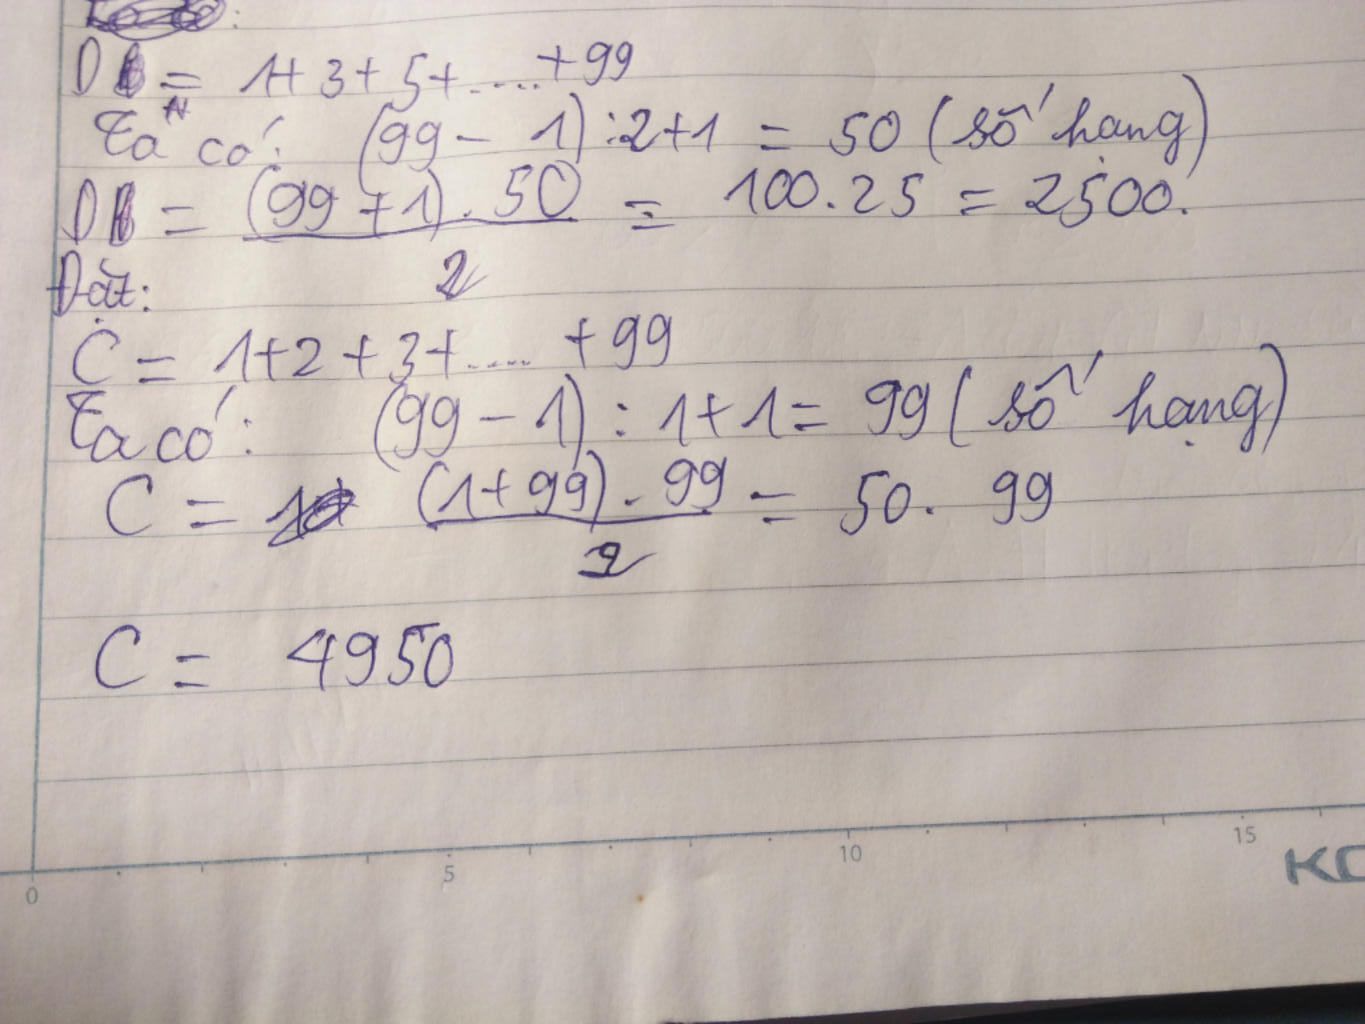 D = 1+3+5+.....+99
Ta có: (99-1):2+1 = 50 (số hạng)
D = (99+1).50 / 2 = 100.25 = 2500.
Đặt:
C = 1+2+3+.....+99
Ta có: (99-1):1+1 = 99 (số hạng)
C = (1+99).99 / 2 = 50.99
C = 4950
0 5 10 15